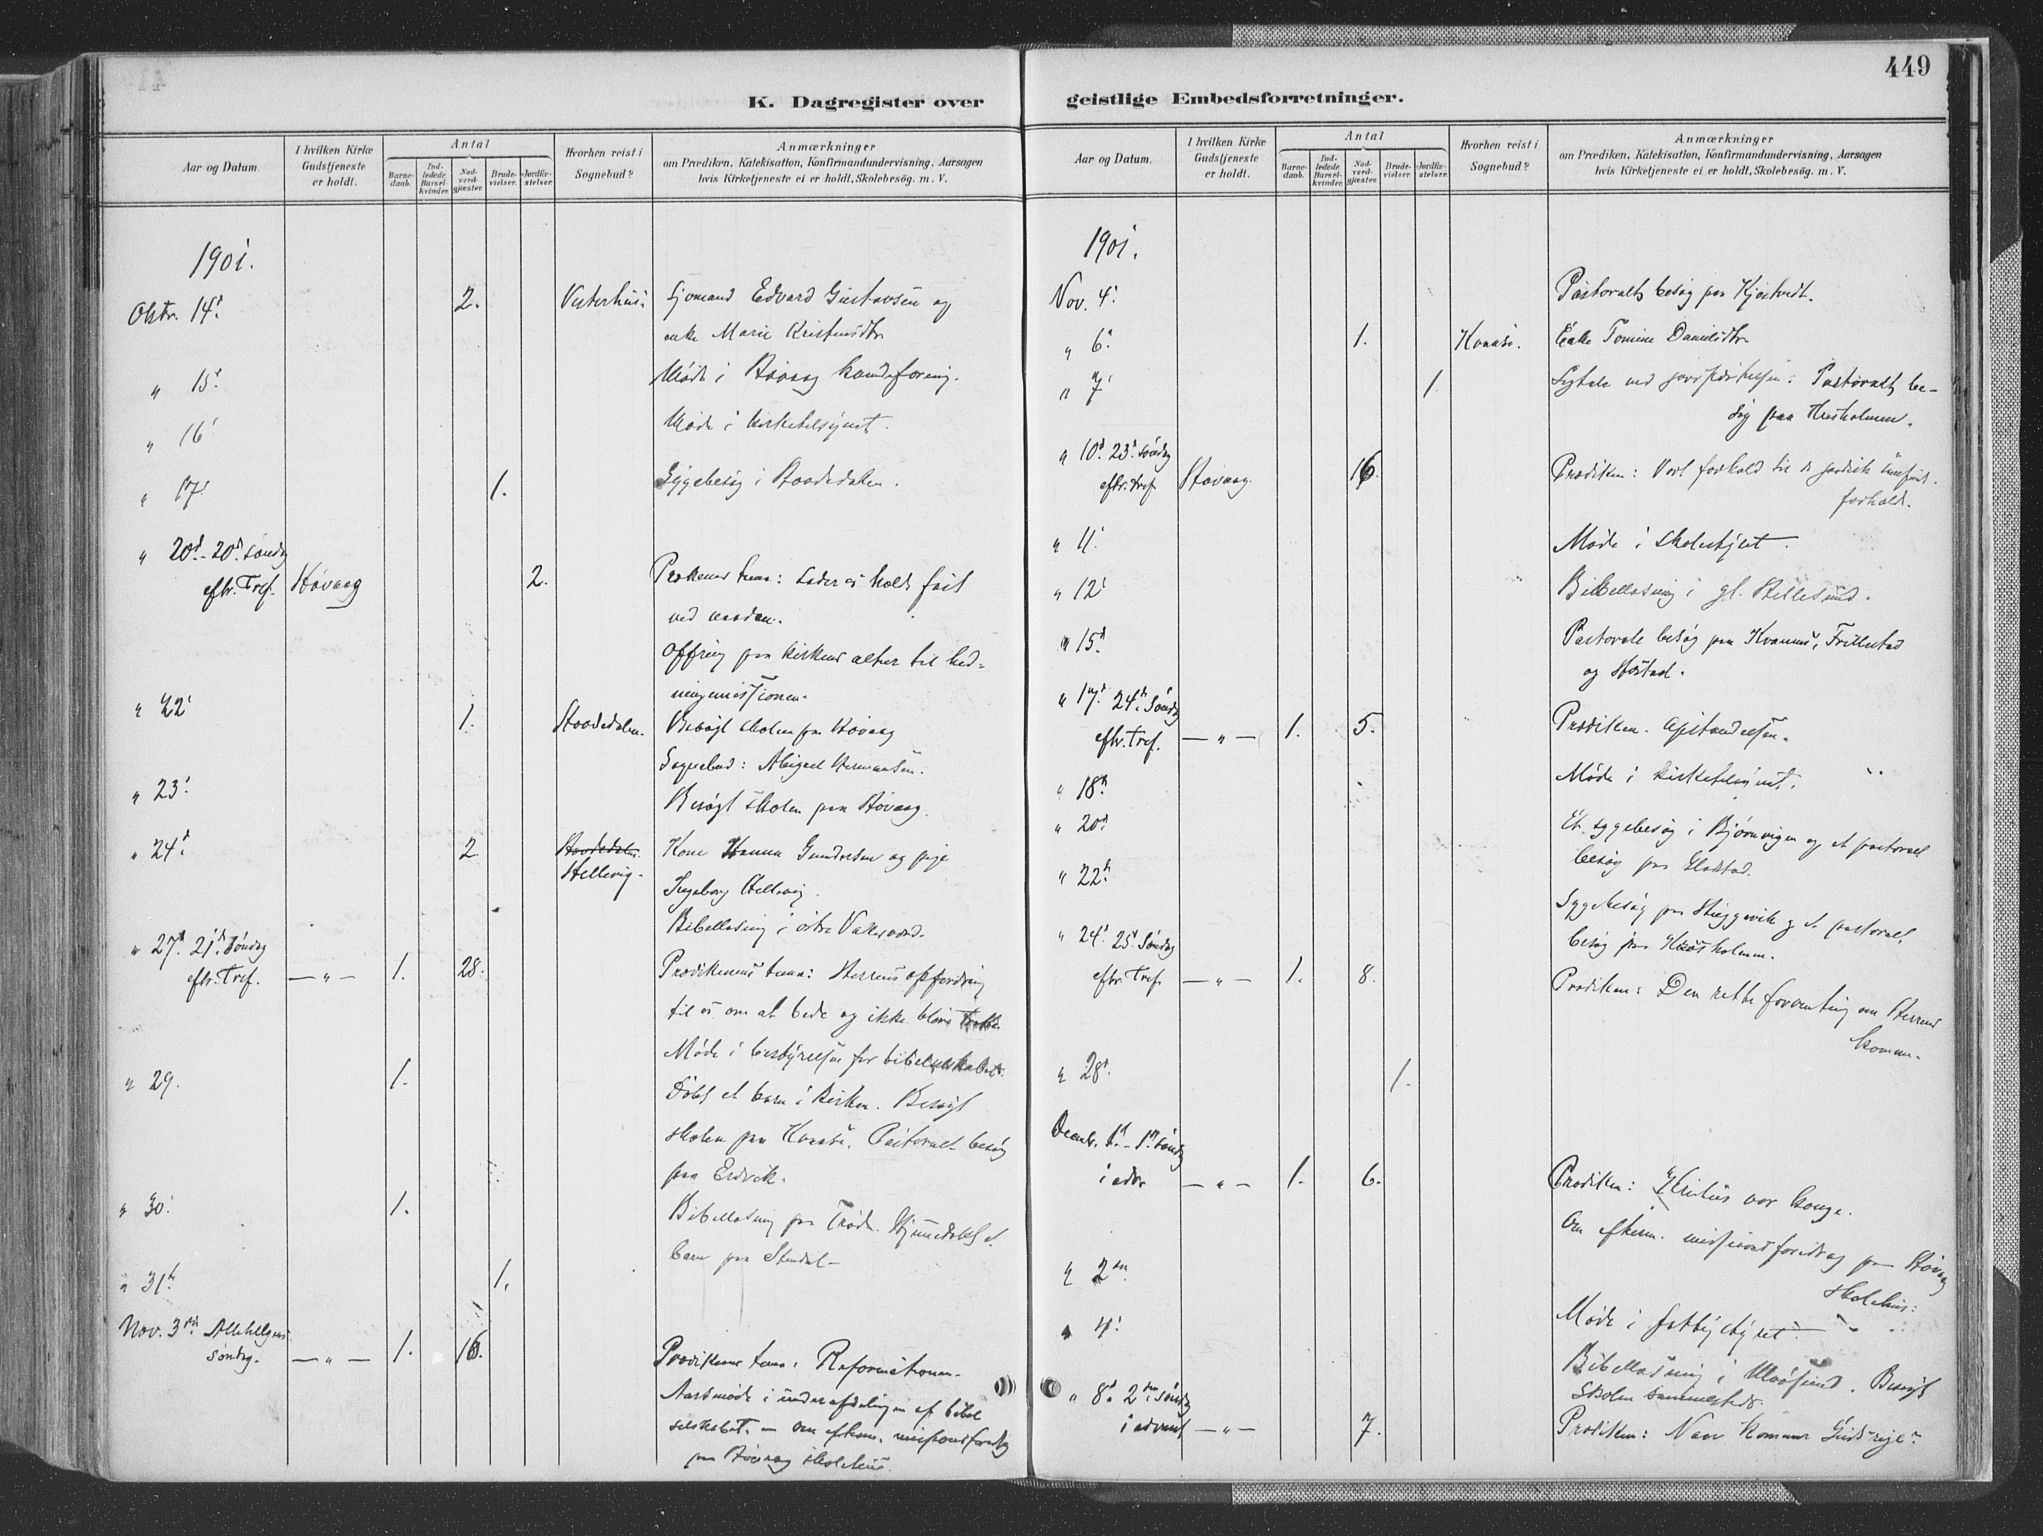 449
K. Dagregister over
geistlige Embedsforretninger.
Aar og Datum.
I hvilken Kirke
Gudstjeneste
er holdt.
Antal
Barne-
daab.
Ind-
ledede
Barsel-
kvinder.
Nad-
verd-
gjæster.
Brude-
vielser.
Jordfæ-
stelser.
Hvorhen reist i
Sognebud?
Anmærkninger
om Prædiken, Katekisation, Konfirmandundervisning, Aarsagen
hvis Kirketjeneste ei er holdt, Skolebesøg. m. V.
1901.
Oktr. 14d 2. Vesterhus. Sjømand Edvard Gustavsen og
enke Marie Kristensdtr.
" 15d Møde i Høvaag
" 16 Møde i kirketilsynet.
" 17. 1. Sygebesøg i Haadedalen.
" 20d - 20d søndag
eftr. Tref. Høvaag 2. Prækenens tema: Lader os holde fast
ved naaden.
Offring paa kirkens alter til hed-
ningemissionen.
" 22 1. Haadedalen. Besøgt skolen paa Høvaag
Sognebud: Abigael Hermansen.
" 23 Besøgt skolen paa Høvaag.
" 24d 2 Haadedalen Kone Hanna Gundersen og pige
Hellevig. Ingeborg Hellevig.
Bibellæsning i østre Vallesværd.
" 27d 21d Søndag
eftr. Tref. — " — 1. 28. Prædikenens tema: Herrens opfordring
til os om at bede og ikke blive trætte.
Møde i bestyrelsen for bibelselskabet.
" 29. 1. Døbt et barn i kirken. Besøgt
skolen paa Kvaase. Pastoralt besøg
paa Eidvik.
" 30. 1. Bibellæsning paa Hjemmedøbt et
barn paa Stendal
" 31te 1.
Nov. 3die Allehelgens
søndag. — " — 1. 16. Prædikenens tema: Reformationen.
Aarsmøde i underafdelingen af bibel
selskabet. — Om efterm. missionsforedrag
paa Høvaag skolehus.
Aar og Datum.
I hvilken Kirke
Gudstjeneste
er holdt.
Antal
Barne-
daab.
Ind-
ledede
Barsel-
kvinder.
Nad-
verd-
gjæster.
Brude-
vielser.
Jordfæ-
stelser.
Hvorhen reist i
Sognebud?
Anmærkninger
om Prædiken, Katekisation, Konfirmandundervisning, Aarsagen
hvis Kirketjeneste ei er holdt, Skolebesøg. m. V.
1901.
Nov. 4. Pastoralt besøg paa Kjøstvedt.
" 6. 1. Kvaase. Enke Tomine Danielsdtr.
" 7 1. Ligtale ved jordfæstelsen. Pastoralt be-
søg paa Hæsholmen.
" 10d 23d Søndag
eftr. Tref. Høvaag. 16. Prædiken: Vort forhold til de jordisk
forhold.
" 11. Møde i skolestyret.
" 12 Bibellæsning i gl. Hellesund.
" 15d Pastorale besøg paa Kvannes, Trillestad
og
" 17d 24d Søndag
eftr. Tref. — " — 1. 5. Prædiken. Opstandelsen.
" 18d Møde i kirketilsynet.
" 20d Et sygebesøg i Bjørnvigen og et pastoralt
besøg paa
" 22d Sygebesøg paa og et pastoralt
besøg paa Hæsholmen.
" 24d 25d Søndag
eftr. Tref. — " — 1. 8. Prædiken: Den rette forventning om Herrens
komme.
" 28d 1.
Decemb. 1ste - 1ste søndag
i adv. — " — 1. 6. Prædiken: Kristus vor konge.
Om efterm. missionsforedrag paa Høvaag
skolehus.
" 2den
" 4. Møde i fattigstyret.
Bibellæsning i Ulvøsund. Besøgt
skolen sammesteds.
" 8d 2den søndag
i advent — " — 7. Prædiken: Naar kommer Guds rige?